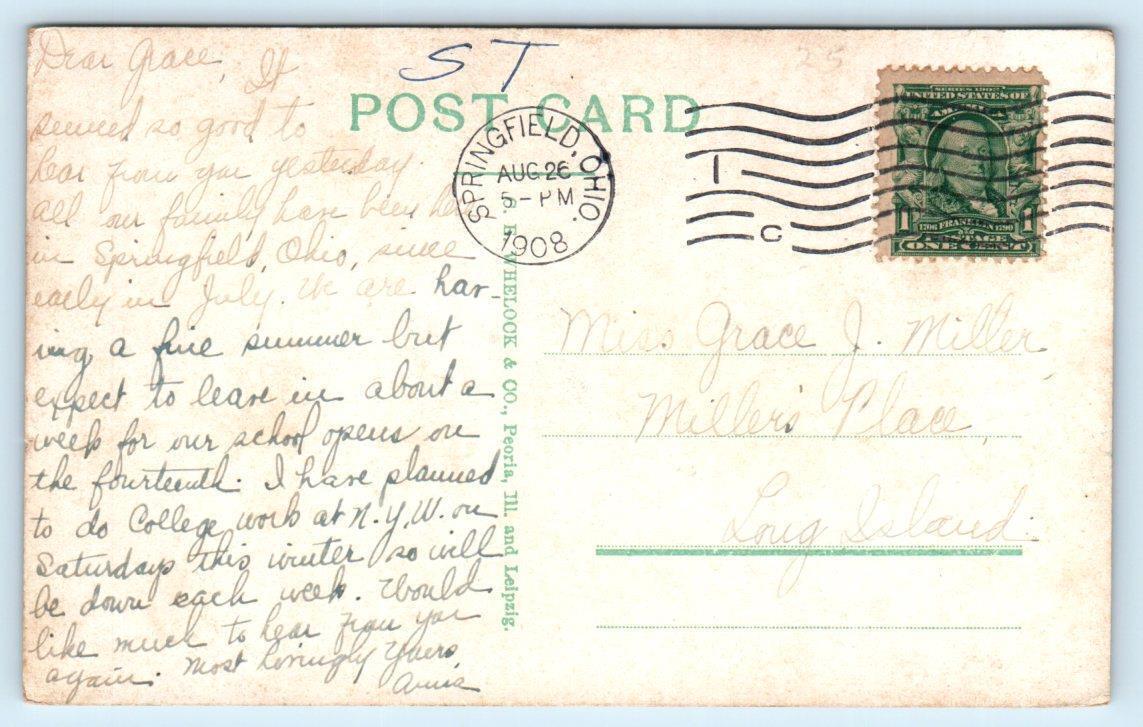 Dear Grace, It
seemed so good to
hear from you yesterday.
All our family have been here
in Springfield, Ohio, since
early in July. We are hav-
ing a fine summer but
expect to leave in about a
week for our school opens on
the fourteenth. I have planned
to do College work at N.Y.U. on
Saturdays this winter so will
be down each week. Would
like much to hear from you
again. Most lovingly Yours,
Anna
ST
25
POST CARD
SPRINGFIELD, OHIO.
AUG 26
5 - PM
1908
1
C
SERIES 1902
UNITED STATES OF
AMERICA
1706 FRANKLIN 1790
1 1
POSTAGE
ONE CENT
WHELOCK & CO., Peoria, Ill. and Leipzig.
Miss Grace J. Miller
Miller's Place,
Long Island.